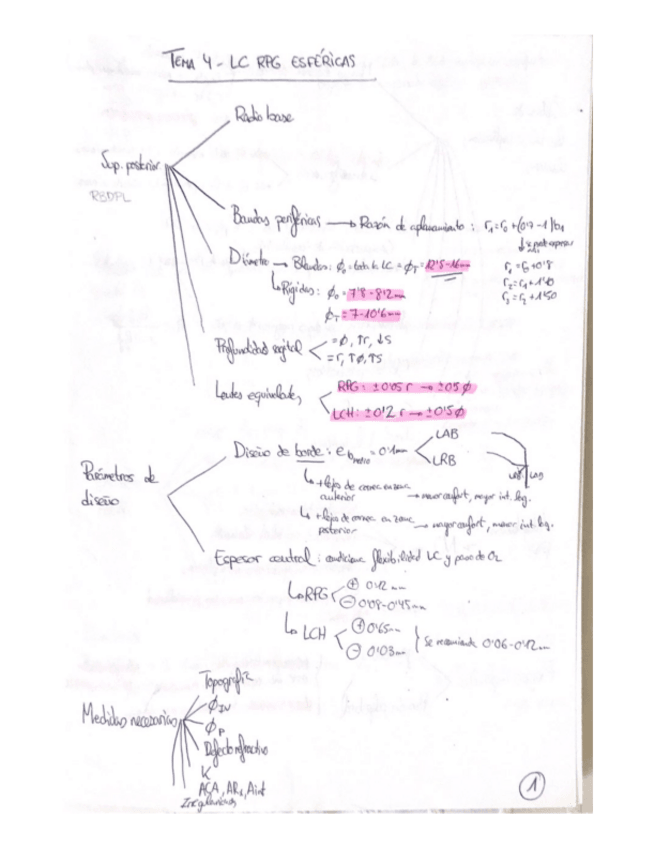 TEMA 4 - LC RPG ESFÉRICAS
Radio base
Sup. posterior
RBDPL
Bandas periféricas → Razón de aplanamiento : r₁=r₀+(0'7-1)b₁
r₁=r₀+0'8
r₂=r₁+1'40
r₃=r₂+1'50
Diámetro → Blandas: ϕ₀ LC = ϕT = 12'5-16mm
↳ Rígidas: ϕ₀ = 7'8-8'2mm
ϕT = 7-10'6mm
Profundidad sagital
= ϕ, ↑r, ↓s
= r, ↑ϕ, ↑s
Lentes equivalentes
RPG: ±0'05 r → ±0'5 ϕ
LCH: ±0'2 r → ±0'5 ϕ
Parámetros de diseño
Diseño de borde : e = 0'1mm
LAB
LRB
LAB
↳ +lejos de cornea en zona anterior → menor confort, mayor int. lag.
↳ +lejos de cornea en zona posterior → mayor confort, menor int. lag.
Espesor central : condiciona flexibilidad LC y paso de O₂
↳ RPG
⊕ 0'12 mm
⊖ 0'08-0'45mm
↳ LCH
⊕ 0'65mm
⊖ 0'03mm
} Se recomienda 0'06-0'12mm
Medidas necesarias
Topografía
ϕIV
ϕP
Defecto refractivo
K
ACA, AR, Aint
Irregularidades
1